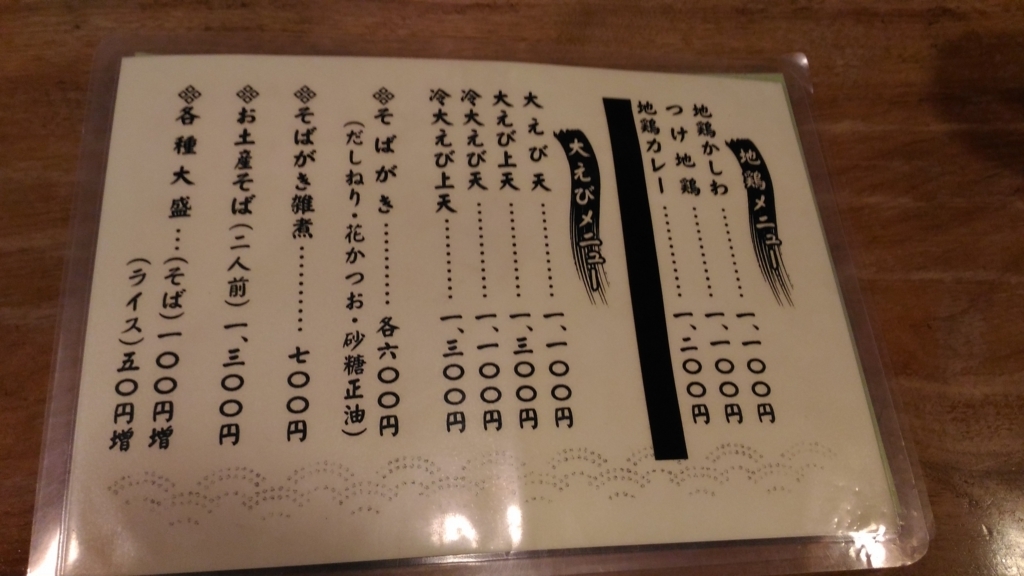 地鶏メニュー
地鶏かしわ…………一、一〇〇円
つけ地鶏…………一、一〇〇円
地鶏カレー…………一、二〇〇円
大えびメニュー
大えび天…………一、一〇〇円
大えび上天…………一、三〇〇円
冷大えび天…………一、一〇〇円
冷大えび上天…………一、三〇〇円
そばがき…………各六〇〇円
(だしねり・花かつお・砂糖正油)
そばがき雑煮…………七〇〇円
お土産そば(二人前)一、三〇〇円
各種大盛…(そば)一〇〇円増
(ライス)五〇円増